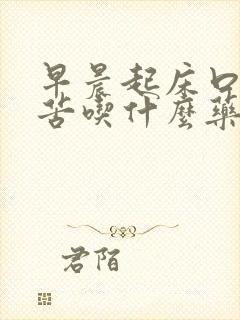 早晨起床口
苦喫什麼藥
君陌